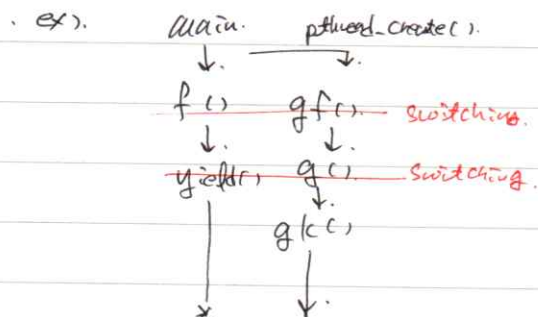 . ex). main. pthread_create().
f() gf(). switching.
yield() g(). switching.
gk()